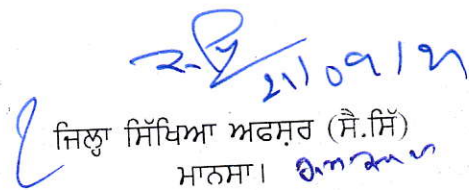 21/09/21
ਜਿਲ੍ਹਾ ਸਿੱਖਿਆ ਅਫਸਰ (ਸੈ.ਸਿੱ)
ਮਾਨਸਾ।